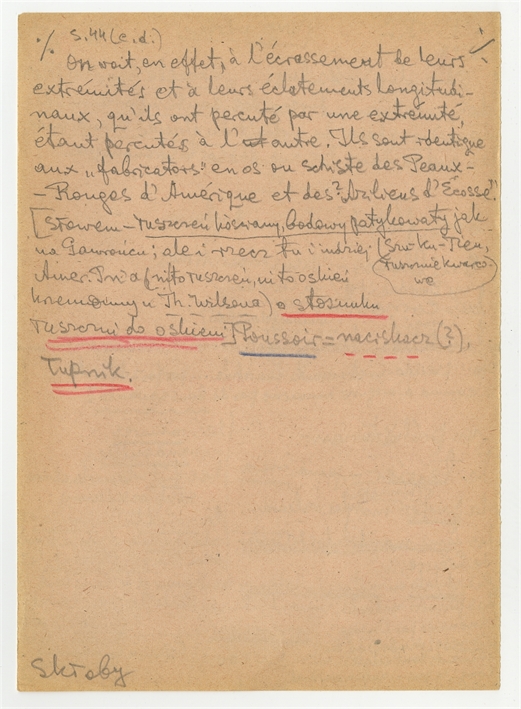 ·/. S. 44 (c.d.) ·/.
On voit, en effet, à l'écrassement de leurs
extrémités et à leurs éclatements longitudi-
naux, qu'ils ont percuté par une extrémité,
étant percutés à l'autre. Ils sont identique
aux „fabricators" en os ou schiste des Peaux-
-Rouges d'Amérique et des? Aziliens d'Écosse".
[słowem - tłuszczeń kościany, budowy patykowaty jak
na Gawrońcu; ale i rzecz tu i indziej (
Amer. Pn.
krzemienny u Th. Wilsona) o stosunku
do Poussoir = naciskacz (?),
Łupnik.
Skłaby